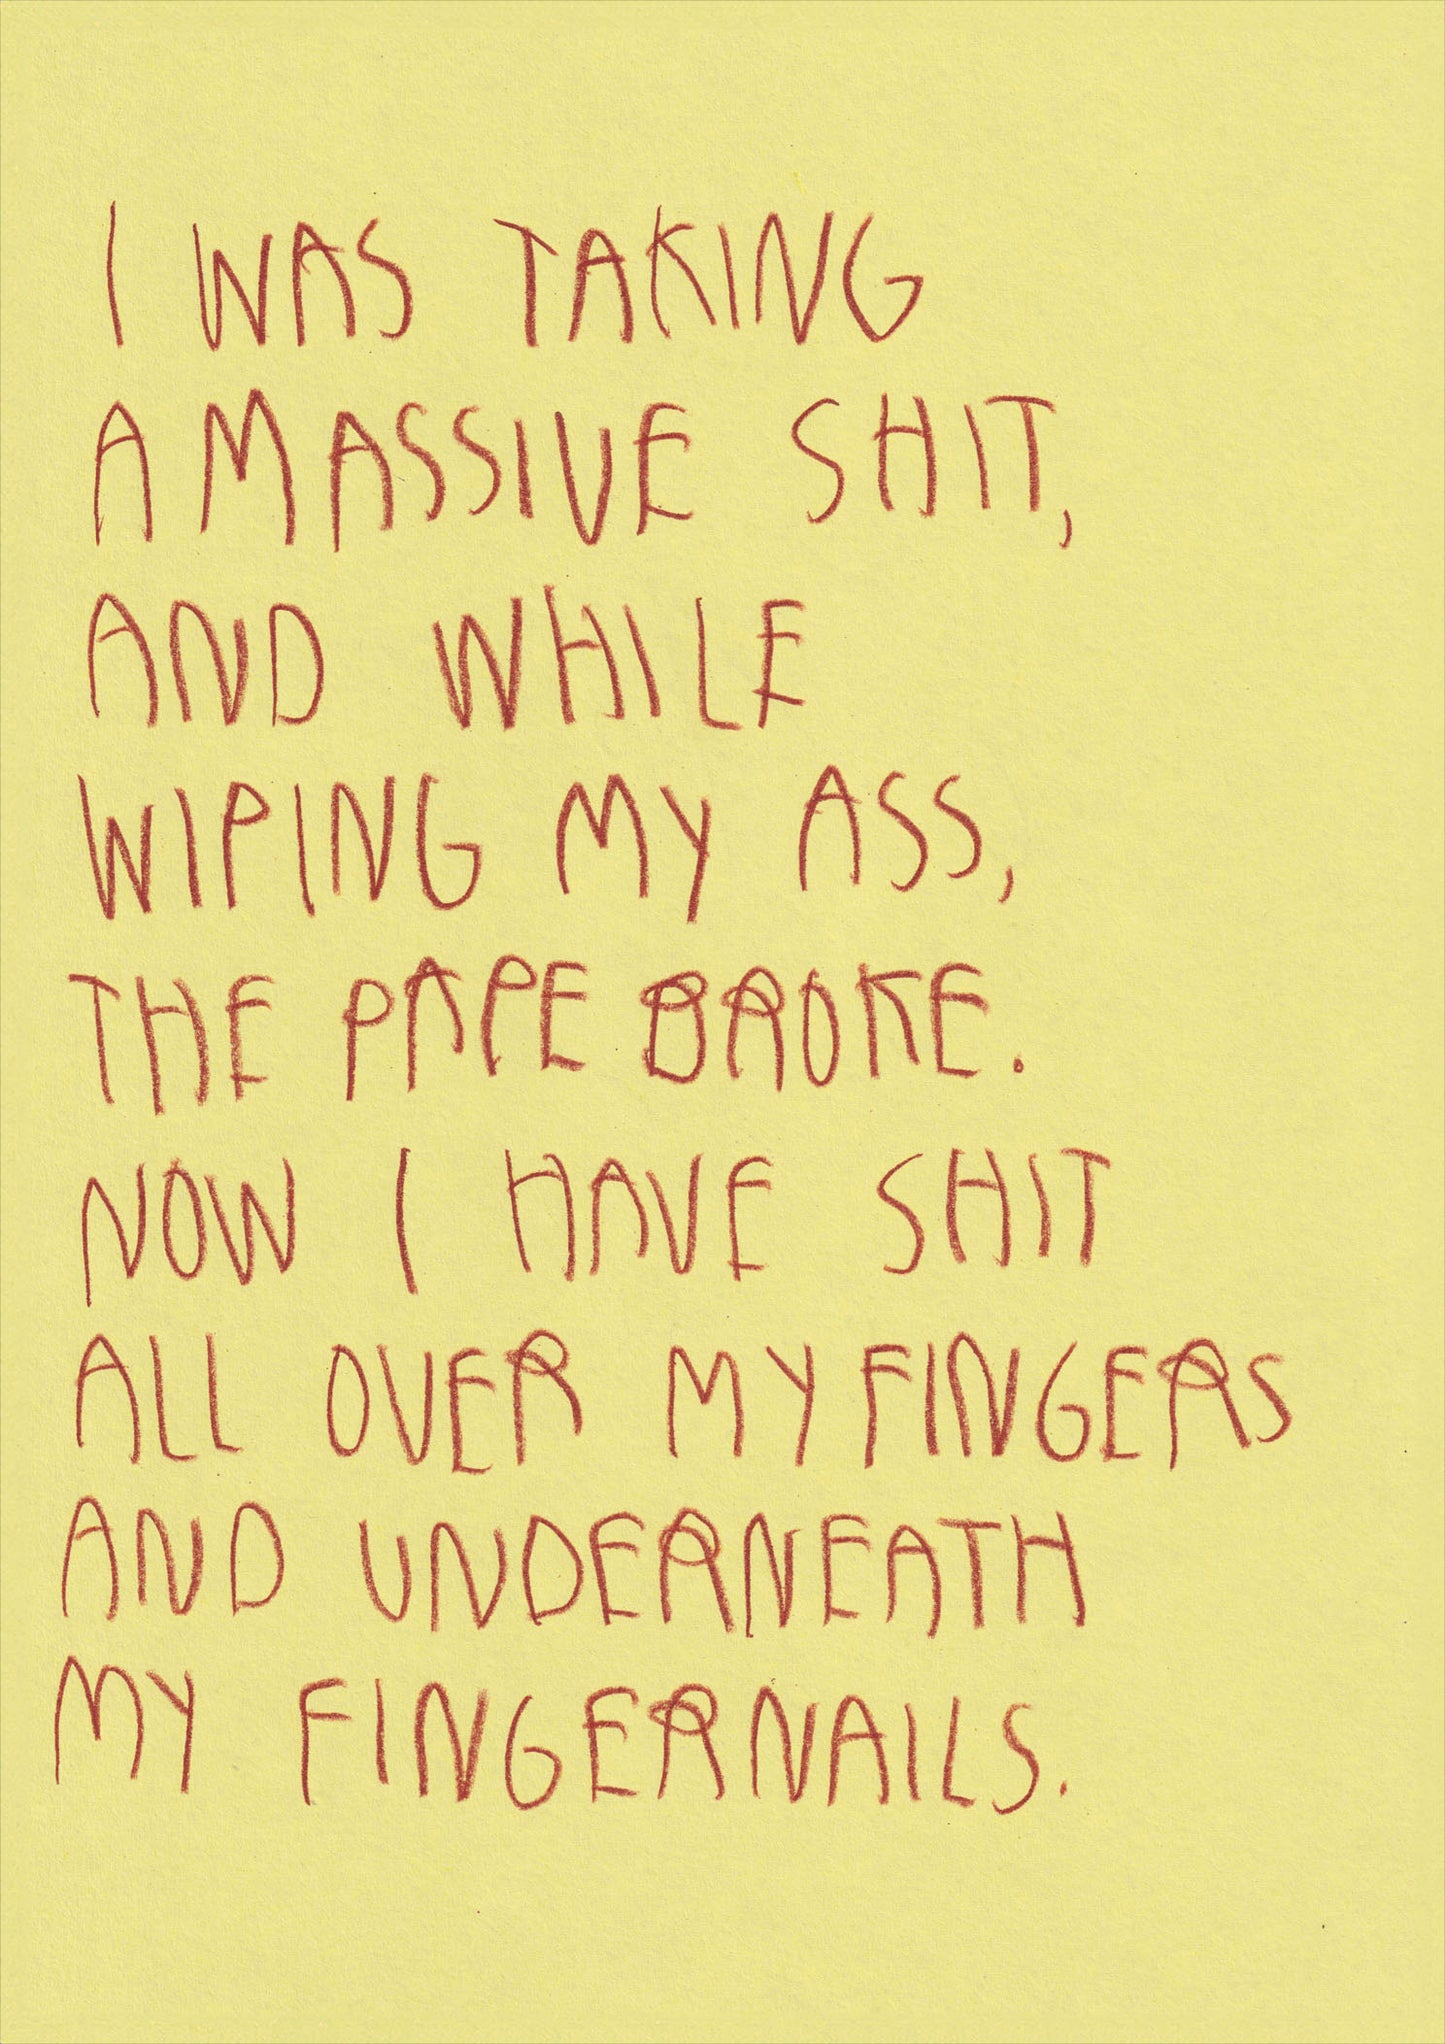 I WAS TAKING
A MASSIVE SHIT,
AND WHILE
WIPING MY ASS,
THE PAPE BROKE.
NOW I HAVE SHIT
ALL OVER MY FINGERS
AND UNDERNEATH
MY FINGERNAILS.